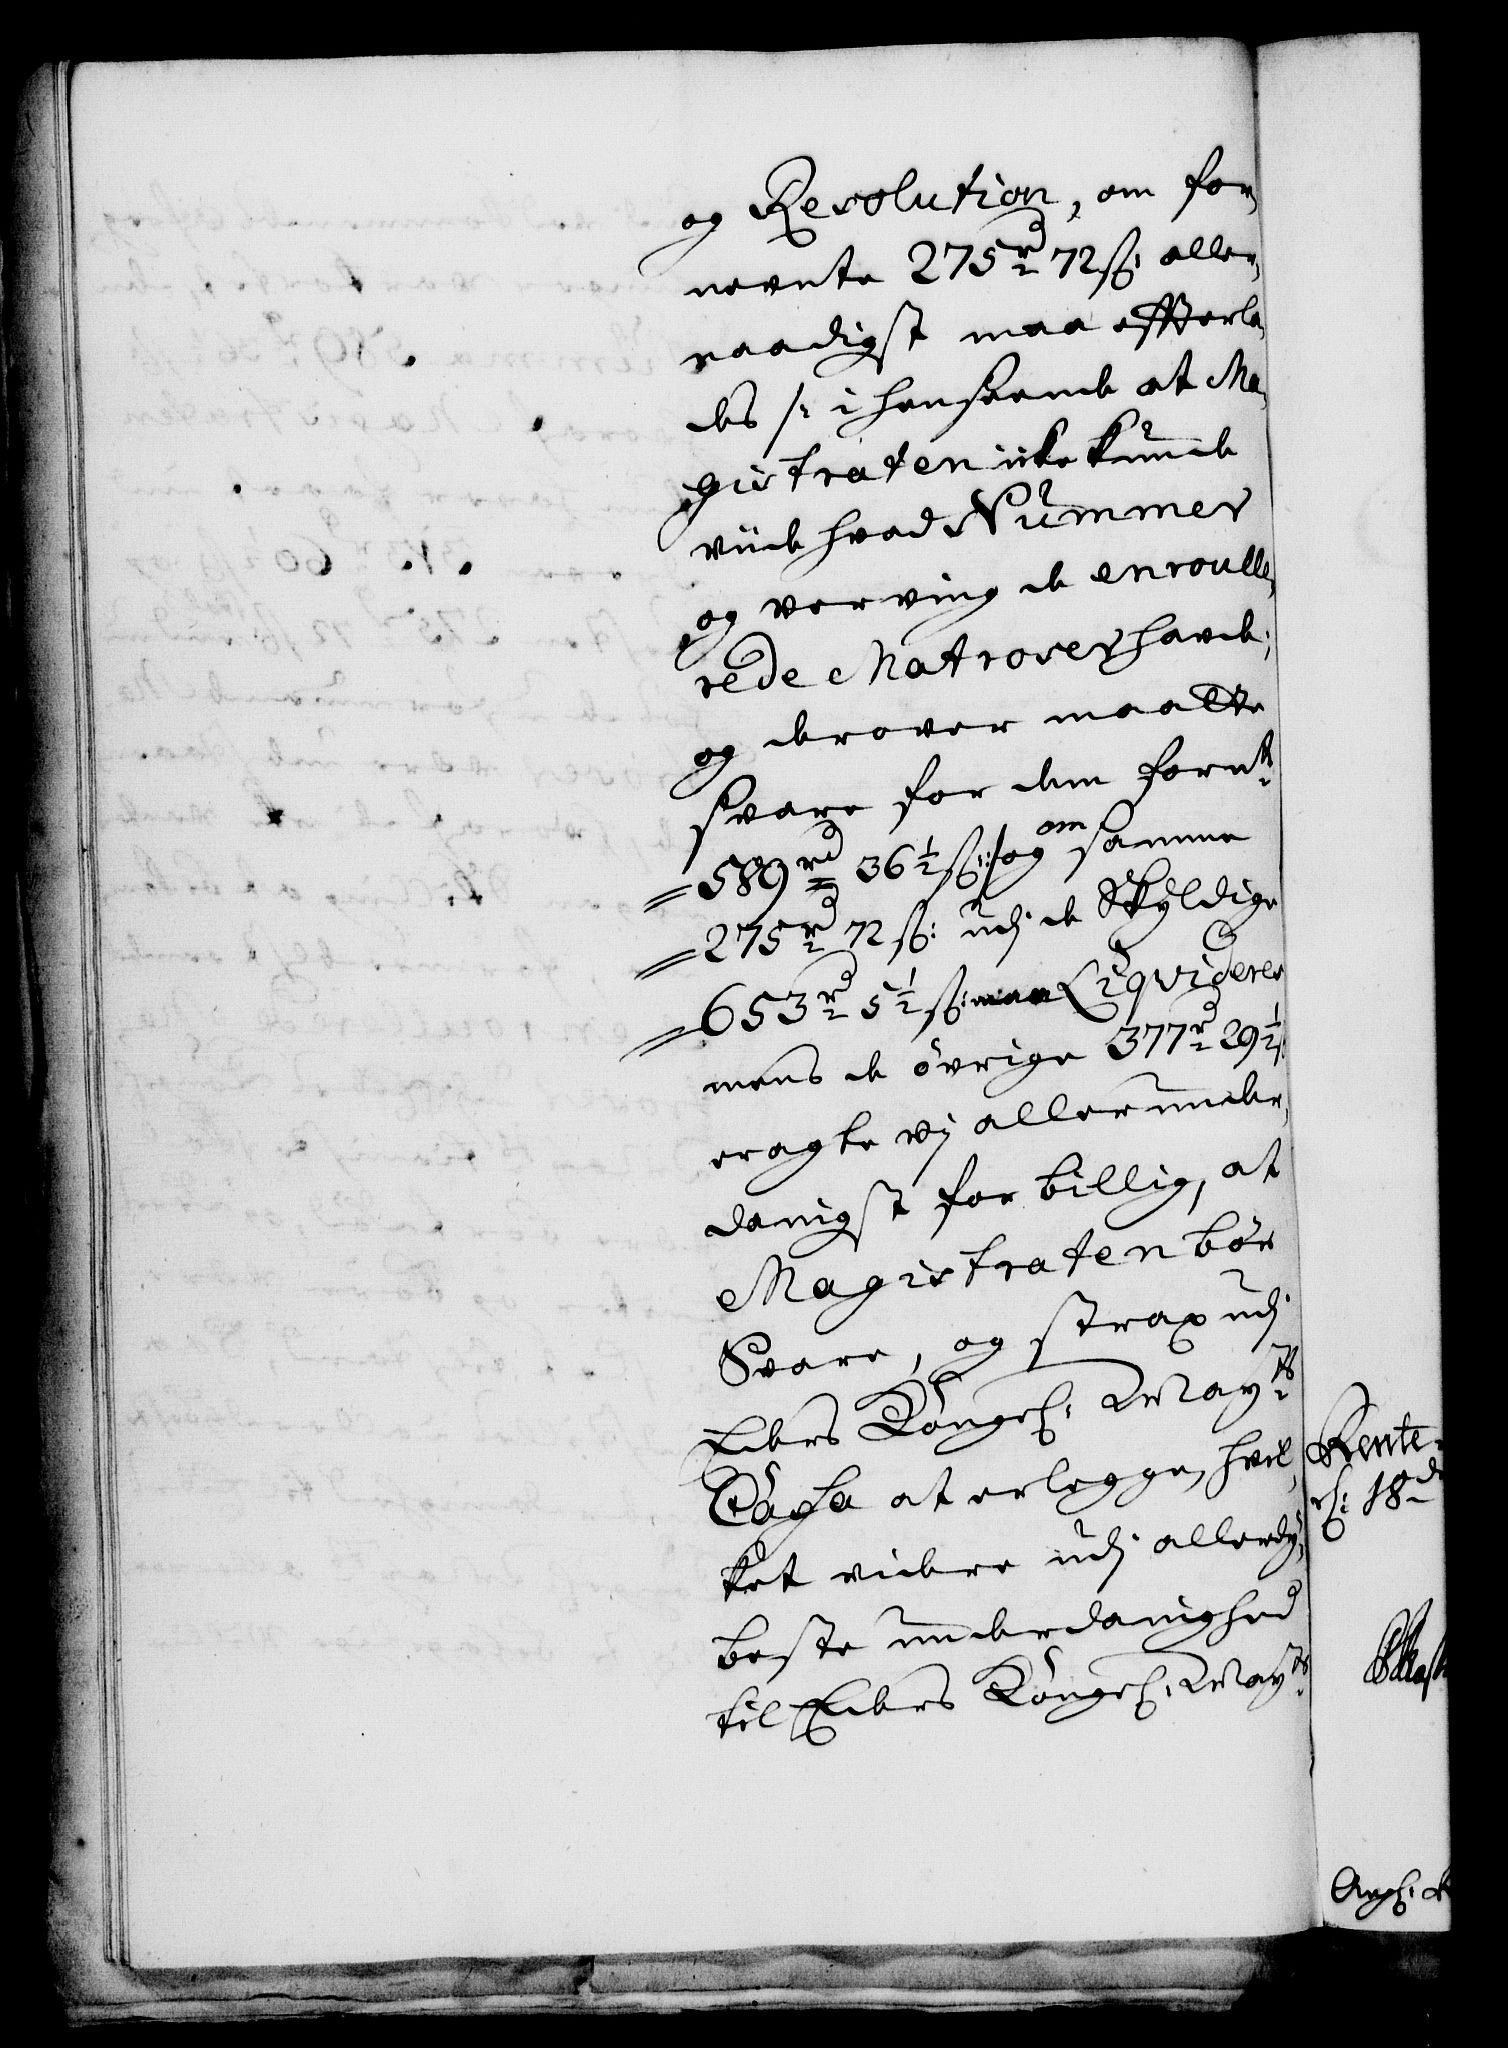 og Resolution, om for¬
nevnte 275 rd 72 s: aller¬
naadigst maa efftterla¬
des /: i henseende at Ma¬
gistraten icke kunde
viide hvad Nummer
og verving de enroulle¬
rede Matroser havde,
og derover maatte
svare for dem fornte
589 rd 36½ s: :/ og om samme
275 rd 72 s: udj de Skyldige
653 rd 5½ s: maa Liqvideres
mens de övrige 377 rd 29½ s
eragte vj allerunder¬
danigst for billig, at
Magistraten bör
Svare, og strax udj
Eders Kongel: Mayts
Cassa at erlegge, hvil¬
ket videre udj allerdy¬
beste underdanighed
til Eders Kongel: Mayts
Rente-
18de